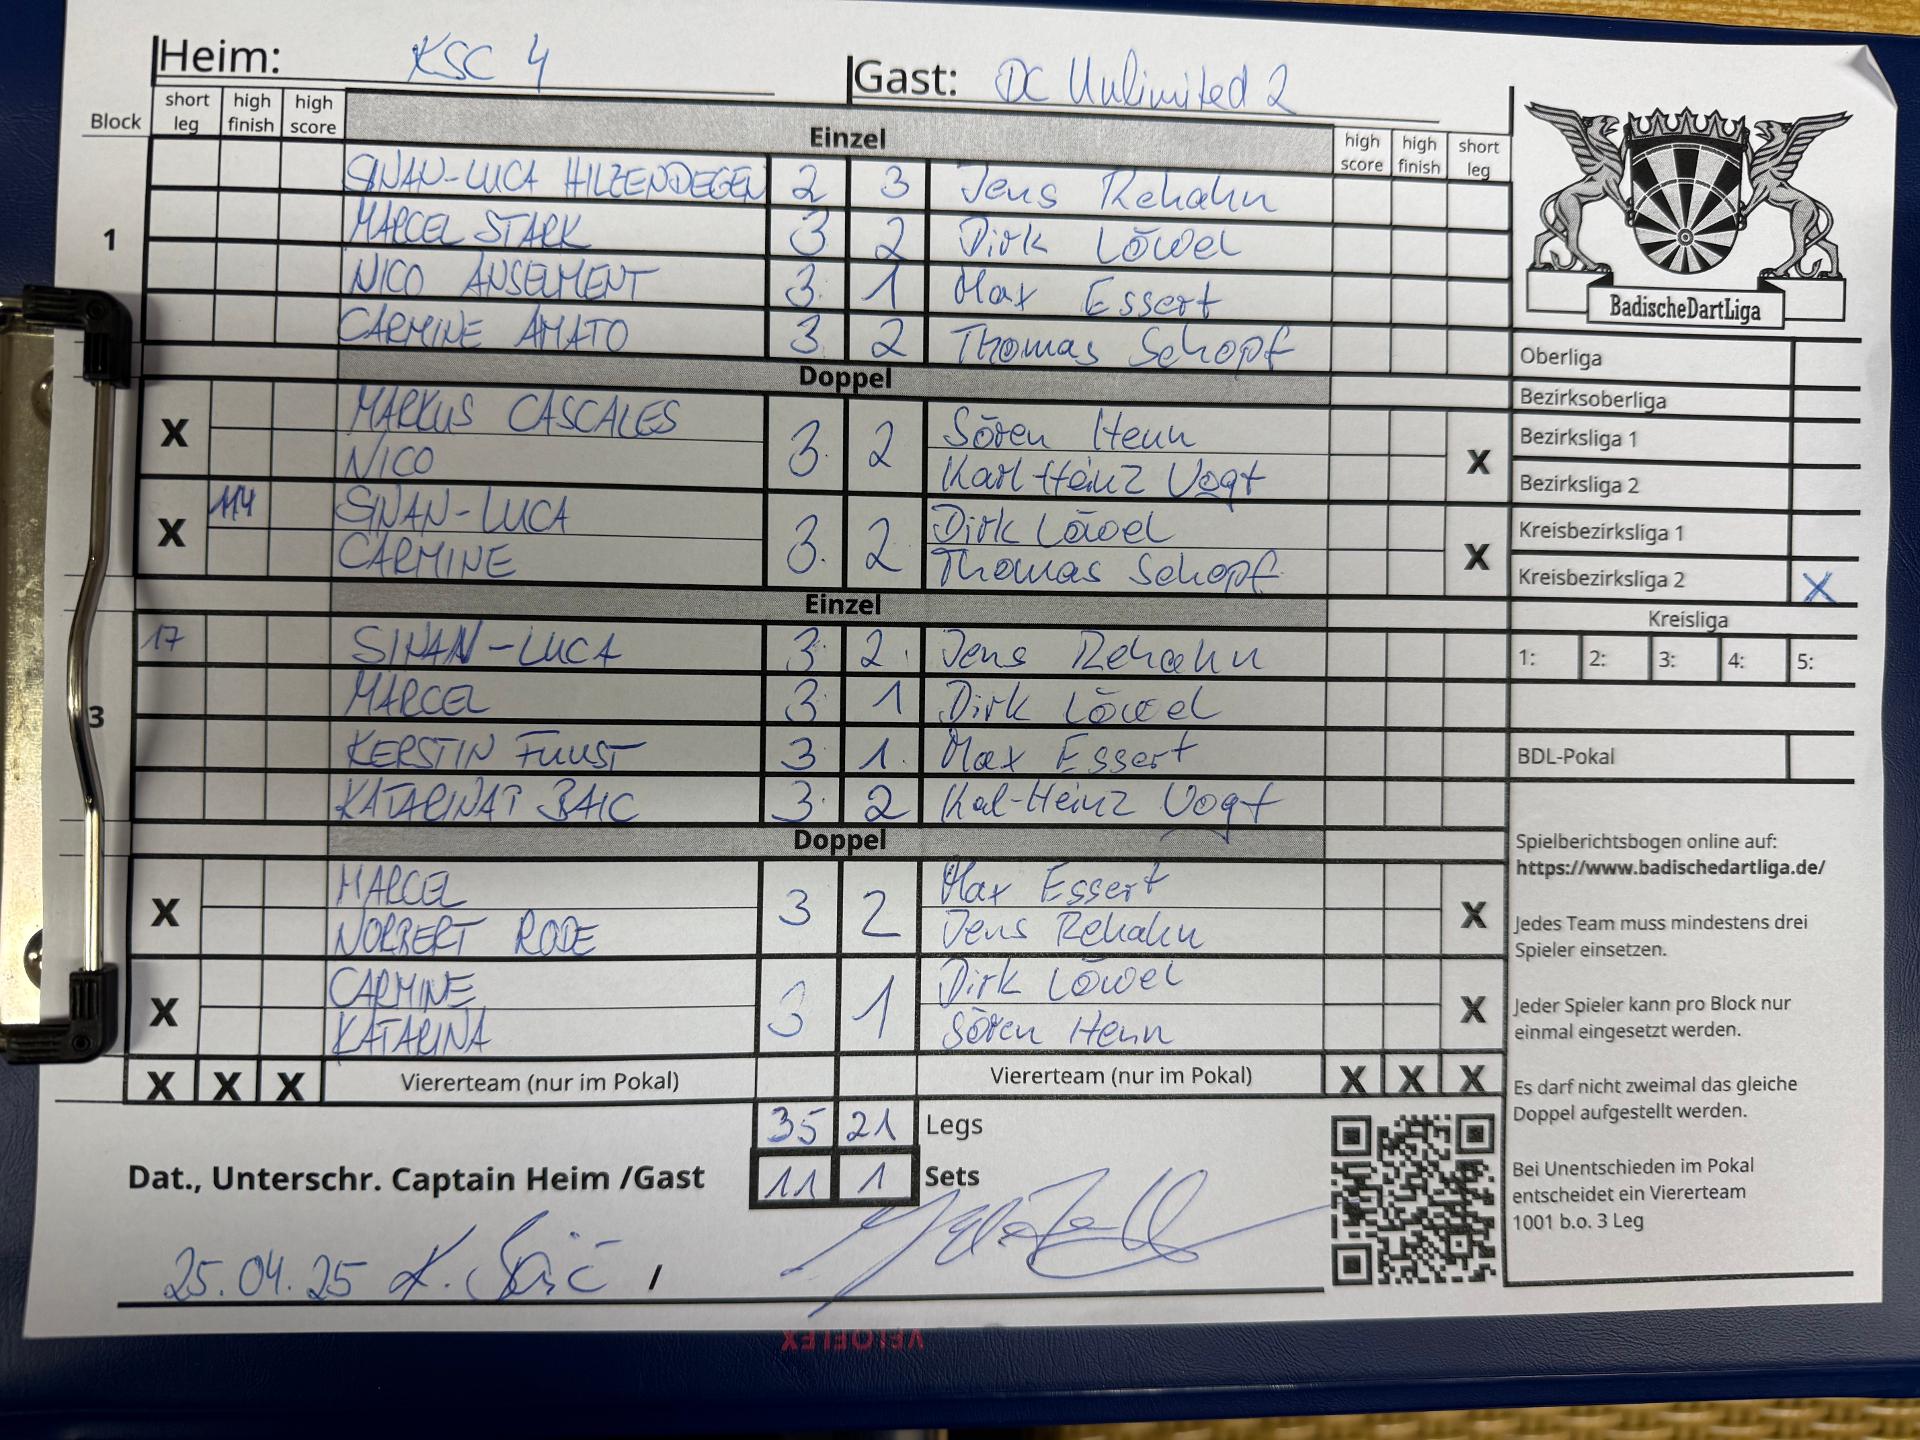 Heim: KSC 4 Gast: DC Unlimited 2
Block short leg high finish high score Einzel high score high finish short leg
SINAN-LUCA HILZENDEGEN 2 3 Jens Rehahn
1 MARCEL STARK 3 2 Dirk Löwel
NICO ANSELMENT 3 1 Max Essert
CARMINE AMATO 3 2 Thomas Schopf
Doppel
MARKUS CASCALES Sören Henn
X 3 2 X
NICO Karl Heinz Vogt
114 SINAN-LUCA Dirk Löwel
X 3 2 X
CARMINE Thomas Schopf
Einzel
17 SINAN-LUCA 3 2 Jens Rehahn
3 MARCEL 3 1 Dirk Löwel
KERSTIN 3 1 Max Essert
BAIC 3 2 Kal-Heinz Vogt
Doppel
MARCEL Max Essert
X 3 2 X
NORBERT RODE Jens Rehahn
CARMINE Dirk Löwel
X 3 1 X
KATARINA Sören Henn
X X X Viererteam (nur im Pokal) Viererteam (nur im Pokal) X X X
35 21 Legs
Dat., Unterschr. Captain Heim /Gast 11 1 Sets
25.04.25 /
BadischeDartLiga
Oberliga
Bezirksoberliga
Bezirksliga 1
Bezirksliga 2
Kreisbezirksliga 1
Kreisbezirksliga 2 X
Kreisliga
1: 2: 3: 4: 5:
BDL-Pokal
Spielberichtsbogen online auf:
https://www.badischedartliga.de/
Jedes Team muss mindestens drei
Spieler einsetzen.
Jeder Spieler kann pro Block nur
einmal eingesetzt werden.
Es darf nicht zweimal das gleiche
Doppel aufgestellt werden.
Bei Unentschieden im Pokal
entscheidet ein Viererteam
1001 b.o. 3 Leg
VELOFLEX